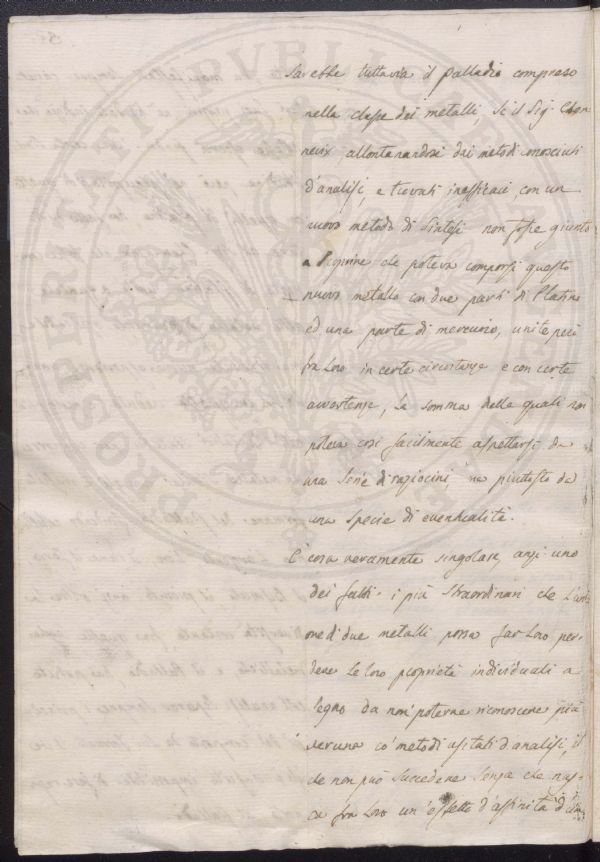 sarebbe tuttavia il Palladio compreso
nella classe dei metalli, se il Sig. Chen
nevix allontanandosi dai metodi conosciuti
d'analisi, e trovati inefficaci, con un
nuovo metodo di Sintesi non fosse giunto
a scoprire che poteva comporsi questo
nuovo metallo con due parti di Platino
ed una parte di mercurio, unite però
fra Loro in certe circostanze e con certe
avvertenze, la somma delle quali non
poteva così facilmente aspettarsi da
una serie di raziocini ma piutosto da
una specie di eventualità.
È cosa veramente singolare, anzi uno
dei fatti i più straordinari che l'uni
one di due metalli possa far Loro per-
dere le loro proprietà individuali a
segno da non poterne riconoscere più
veruna co' metodi usitati d'analisi, il
che non può succedere senza che nas-
ca fra Loro un'effetto d'affinità